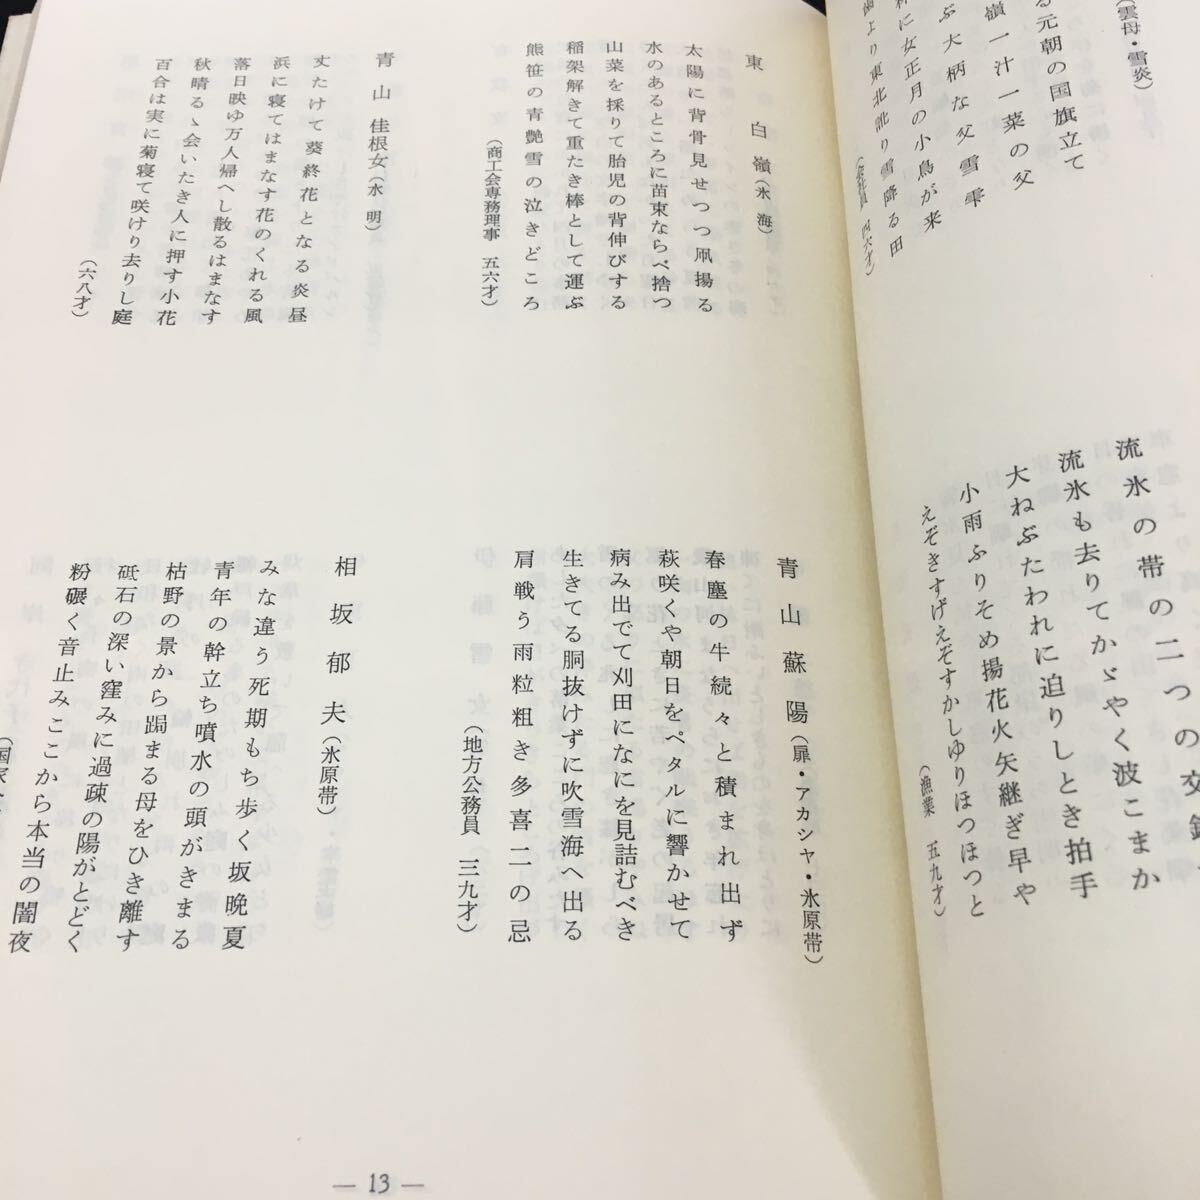 (雲母・雪炎)
る元朝の国旗立て
嶺一汁一菜の父
ぶ大柄な父雪雫
に女正月の小鳥が来
歯より東北訛り雪降る田
(会社員 四六才)
流氷の帯の二つの交
流氷も去りてかゞやく波こまか
大ねぶたわれに迫りしとき拍手
小雨ふりそめ揚花火矢継ぎ早や
えぞきすげえぞすかしゆりほつほつと
(漁業 五九才)
東白嶺(氷海)
太陽に背骨見せつつ凧揚る
水のあるところに苗束ならべ捨つ
山菜を採りて胎児の背伸びする
稲架解きて重たき棒として運ぶ
熊笹の青艶雪の泣きどころ
(商工会専務理事 五六才)
青山佳根女(水明)
丈たけて葵終花となる炎昼
浜に寝てはまなす花のくれる風
落日映ゆ万人帰へし散るはまなす
秋晴るゝ会いたき人に押す小花
百合は実に菊寝て咲けり去りし庭
(六八才)
青山蘇陽(扉・アカシヤ・氷原帯)
春塵の牛続々と積まれ出ず
萩咲くや朝日をペタルに響かせて
病み出でて刈田になにを見詰むべき
生きてる胴抜けずに吹雪海へ出る
肩戦う雨粒粗き多喜二の忌
(地方公務員 三九才)
相坂郁夫(氷原帯)
みな違う死期もち歩く坂晩夏
青年の幹立ち噴水の頭がきまる
枯野の景から跼まる母をひき離す
砥石の深い窪みに過疎の陽がとどく
粉碾く音止みここから本当の闇夜
(国家
— 13 —